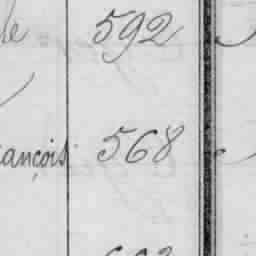 le 592
ançois 568